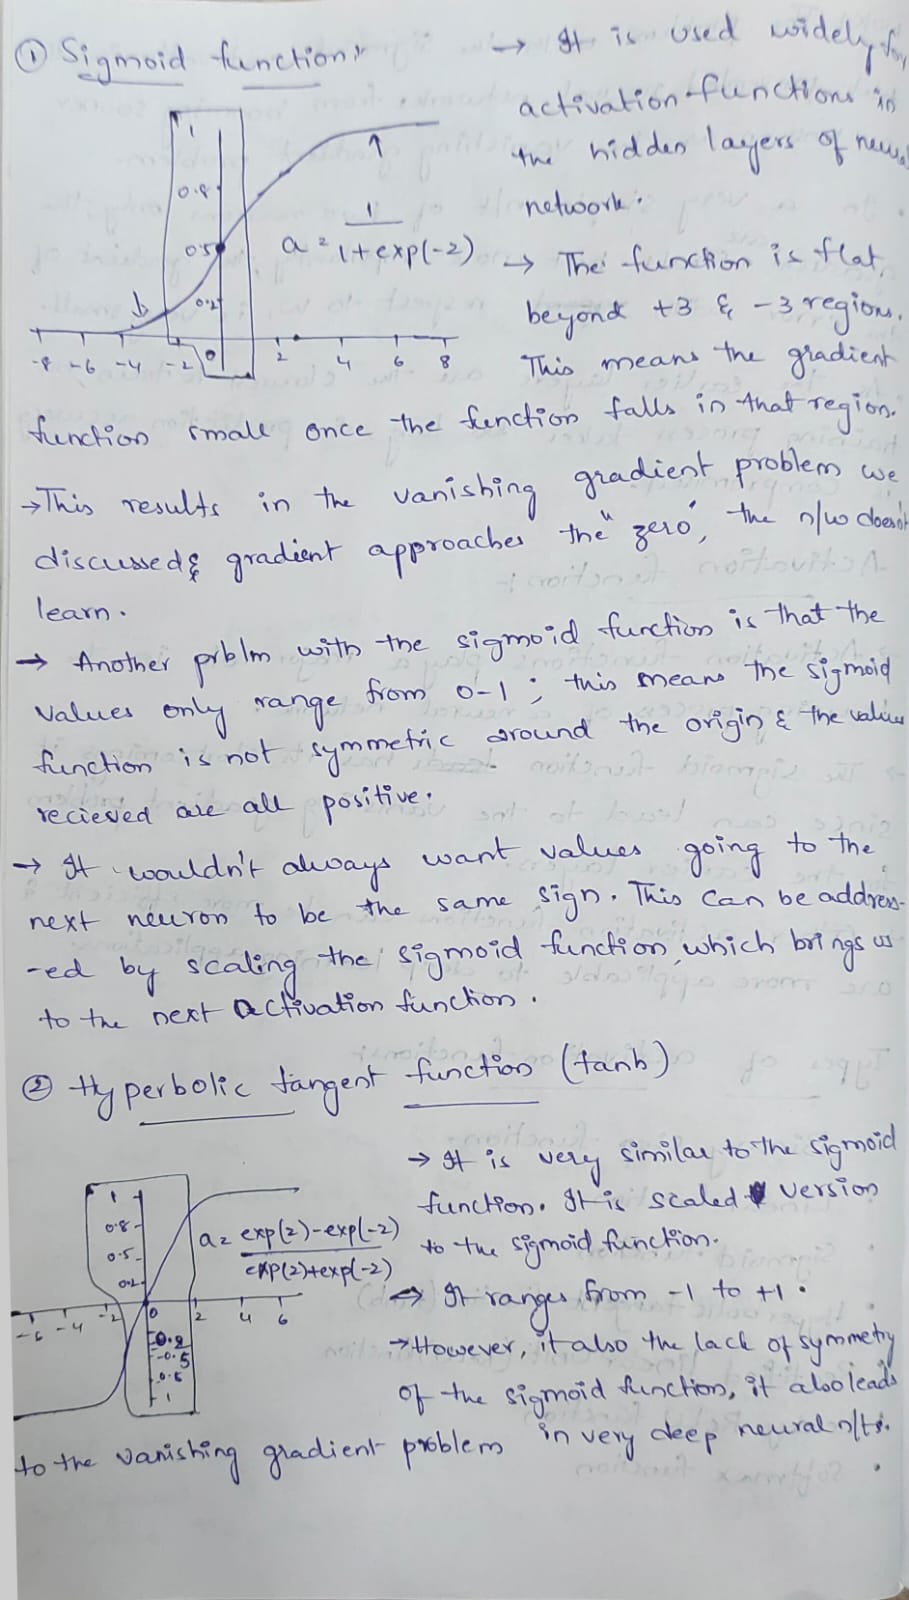 ① Sigmoid function:
→ It is used widely for
activation functions in
the hidden layers of neural
network.
1
0.8
0.5
0.2
0
-8 -6 -4 -2 2 4 6 8
a = 1
1+exp(-z)
→ The function is flat
beyond +3 & -3 regions.
This means the gradient
function small once the function falls in that region.
→ This results in the vanishing gradient problem we
discussed & gradient approaches the "zero", the n/w doesn't
learn.
→ Another prblm with the sigmoid function is that the
values only range from 0-1; this means the sigmoid
function is not symmetric around the origin & the values
recieved are all positive.
→ It wouldn't always want values going to the
next neuron to be the same sign. This can be address-
-ed by scaling the sigmoid function, which brings us
to the next activation function.
② Hyperbolic tangent function (tanh)
→ It is very similar to the sigmoid
function. It is scaled version
to the sigmoid function.
1
0.8
0.5
0.2
-6 -4 -2 0 2 4 6
-0.2
-0.5
-0.8
-1
a = exp(z)-exp(-z)
exp(z)+exp(-z)
→ It ranges from -1 to +1.
→ However, it also the lack of symmetry
of the sigmoid function, it also leads
to the vanishing gradient problem in very deep neural n/ts.